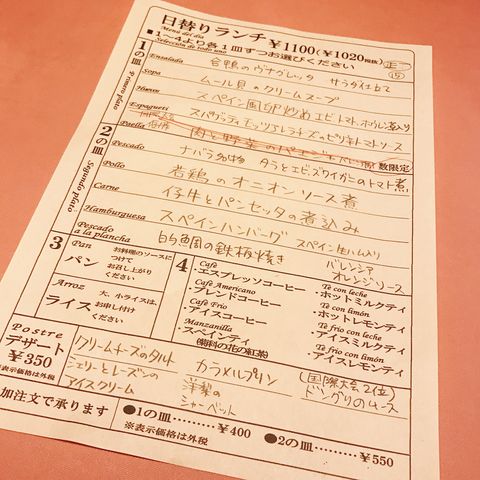 日替りランチ ￥1100(￥1020税抜)
Menú del día
■1～4より各1皿ずつお選びください
Selección de todo uno
1の皿
Primero plato
Ensalada 合鴨のヴナグレッタ サラダ仕立て
Sopa ムール貝のクリームスープ
Huevo スペイン風卵炒め エビ、トマト、ホウレン草入り
Espagueti スパゲッティ モッツァレラチーズのピリ辛トマトソース
Paella 肉と野菜のパエジャ 数限定
2の皿
Segundo plato
Pescado ナバラ名物 タラとエビ、ズワイガニのトマト煮
Pollo 若鶏のオニオンソース煮
Carne 仔牛とパンセッタの煮込み
Hamburguesa スペインハンバーグ スペイン生ハム入り
Pescado a la plancha 白身魚の鉄板焼き バレンシアオレンジソース
3
Pan
パン
お料理のソースに
つけて
お召し上がり
ください
Arroz
ライス
大、小ライスは
お申し付け
ください
4
Café
・エスプレッソコーヒー
Café Americano
・ブレンドコーヒー
Café Frío
・アイスコーヒー
Manzanilla
・スペインティ
Té con leche
・ホットミルクティ
Té con limón
・ホットレモンティ
Té frío con leche
・アイスミルクティ
Té frío con limón
・アイスレモンティ
Postre
デザート
￥350
※表示価格は外税
クリームチーズのタルト
シェリーとレーズンの
アイスクリーム
カラメルプリン
洋梨の
シャーベット
(国際大会2位)
ドングリのムース
加注文で承ります
●1の皿………￥400
●2の皿………￥550
※表示価格は外税